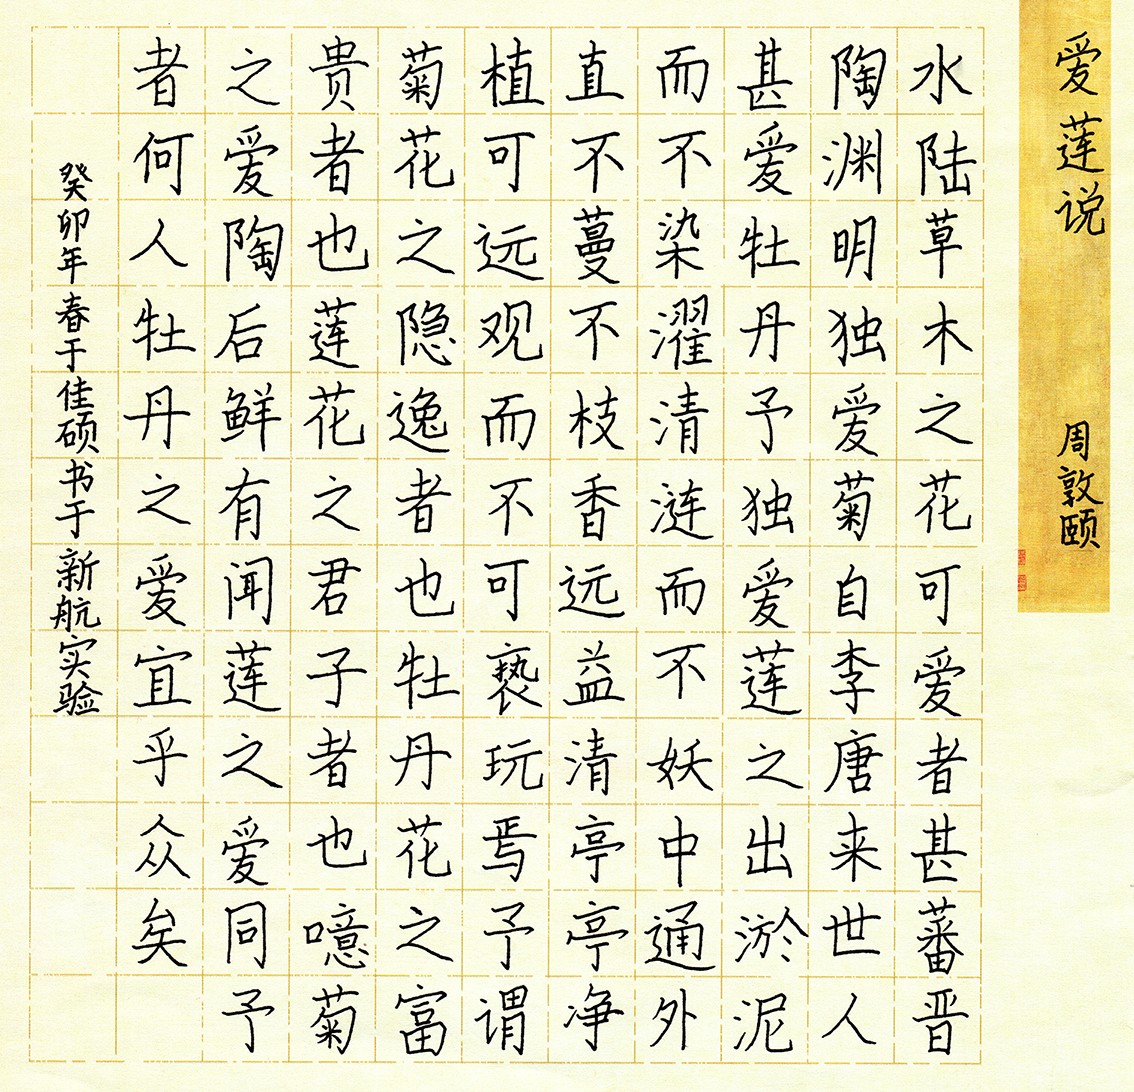 爱莲说 周敦颐
水陆草木之花可爱者甚蕃晋
陶渊明独爱菊自李唐来世人
甚爱牡丹予独爱莲之出淤泥
而不染濯清涟而不妖中通外
直不蔓不枝香远益清亭亭净
植可远观而不可亵玩焉予谓
菊花之隐逸者也牡丹花之富
贵者也莲花之君子者也噫菊
之爱陶后鲜有闻莲之爱同予
者何人牡丹之爱宜乎众矣
癸卯年春于佳硕书于新航实验